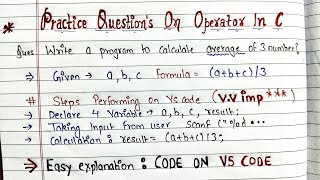 * Practice Question's On Operator In C
Ques Write a program to calculate average of 3 number?
→ Given → a, b, c Formula = (a+b+c)/3
# Steps Performing on Vs code (v.v imp***)
→ Declare 4 Variable → a, b, c, result;
→ Taking Input from user scanf ("%d ...
→ calculation : result = (a+b+c)/3;
⇒ Easy explanation : CODE ON VS CODE